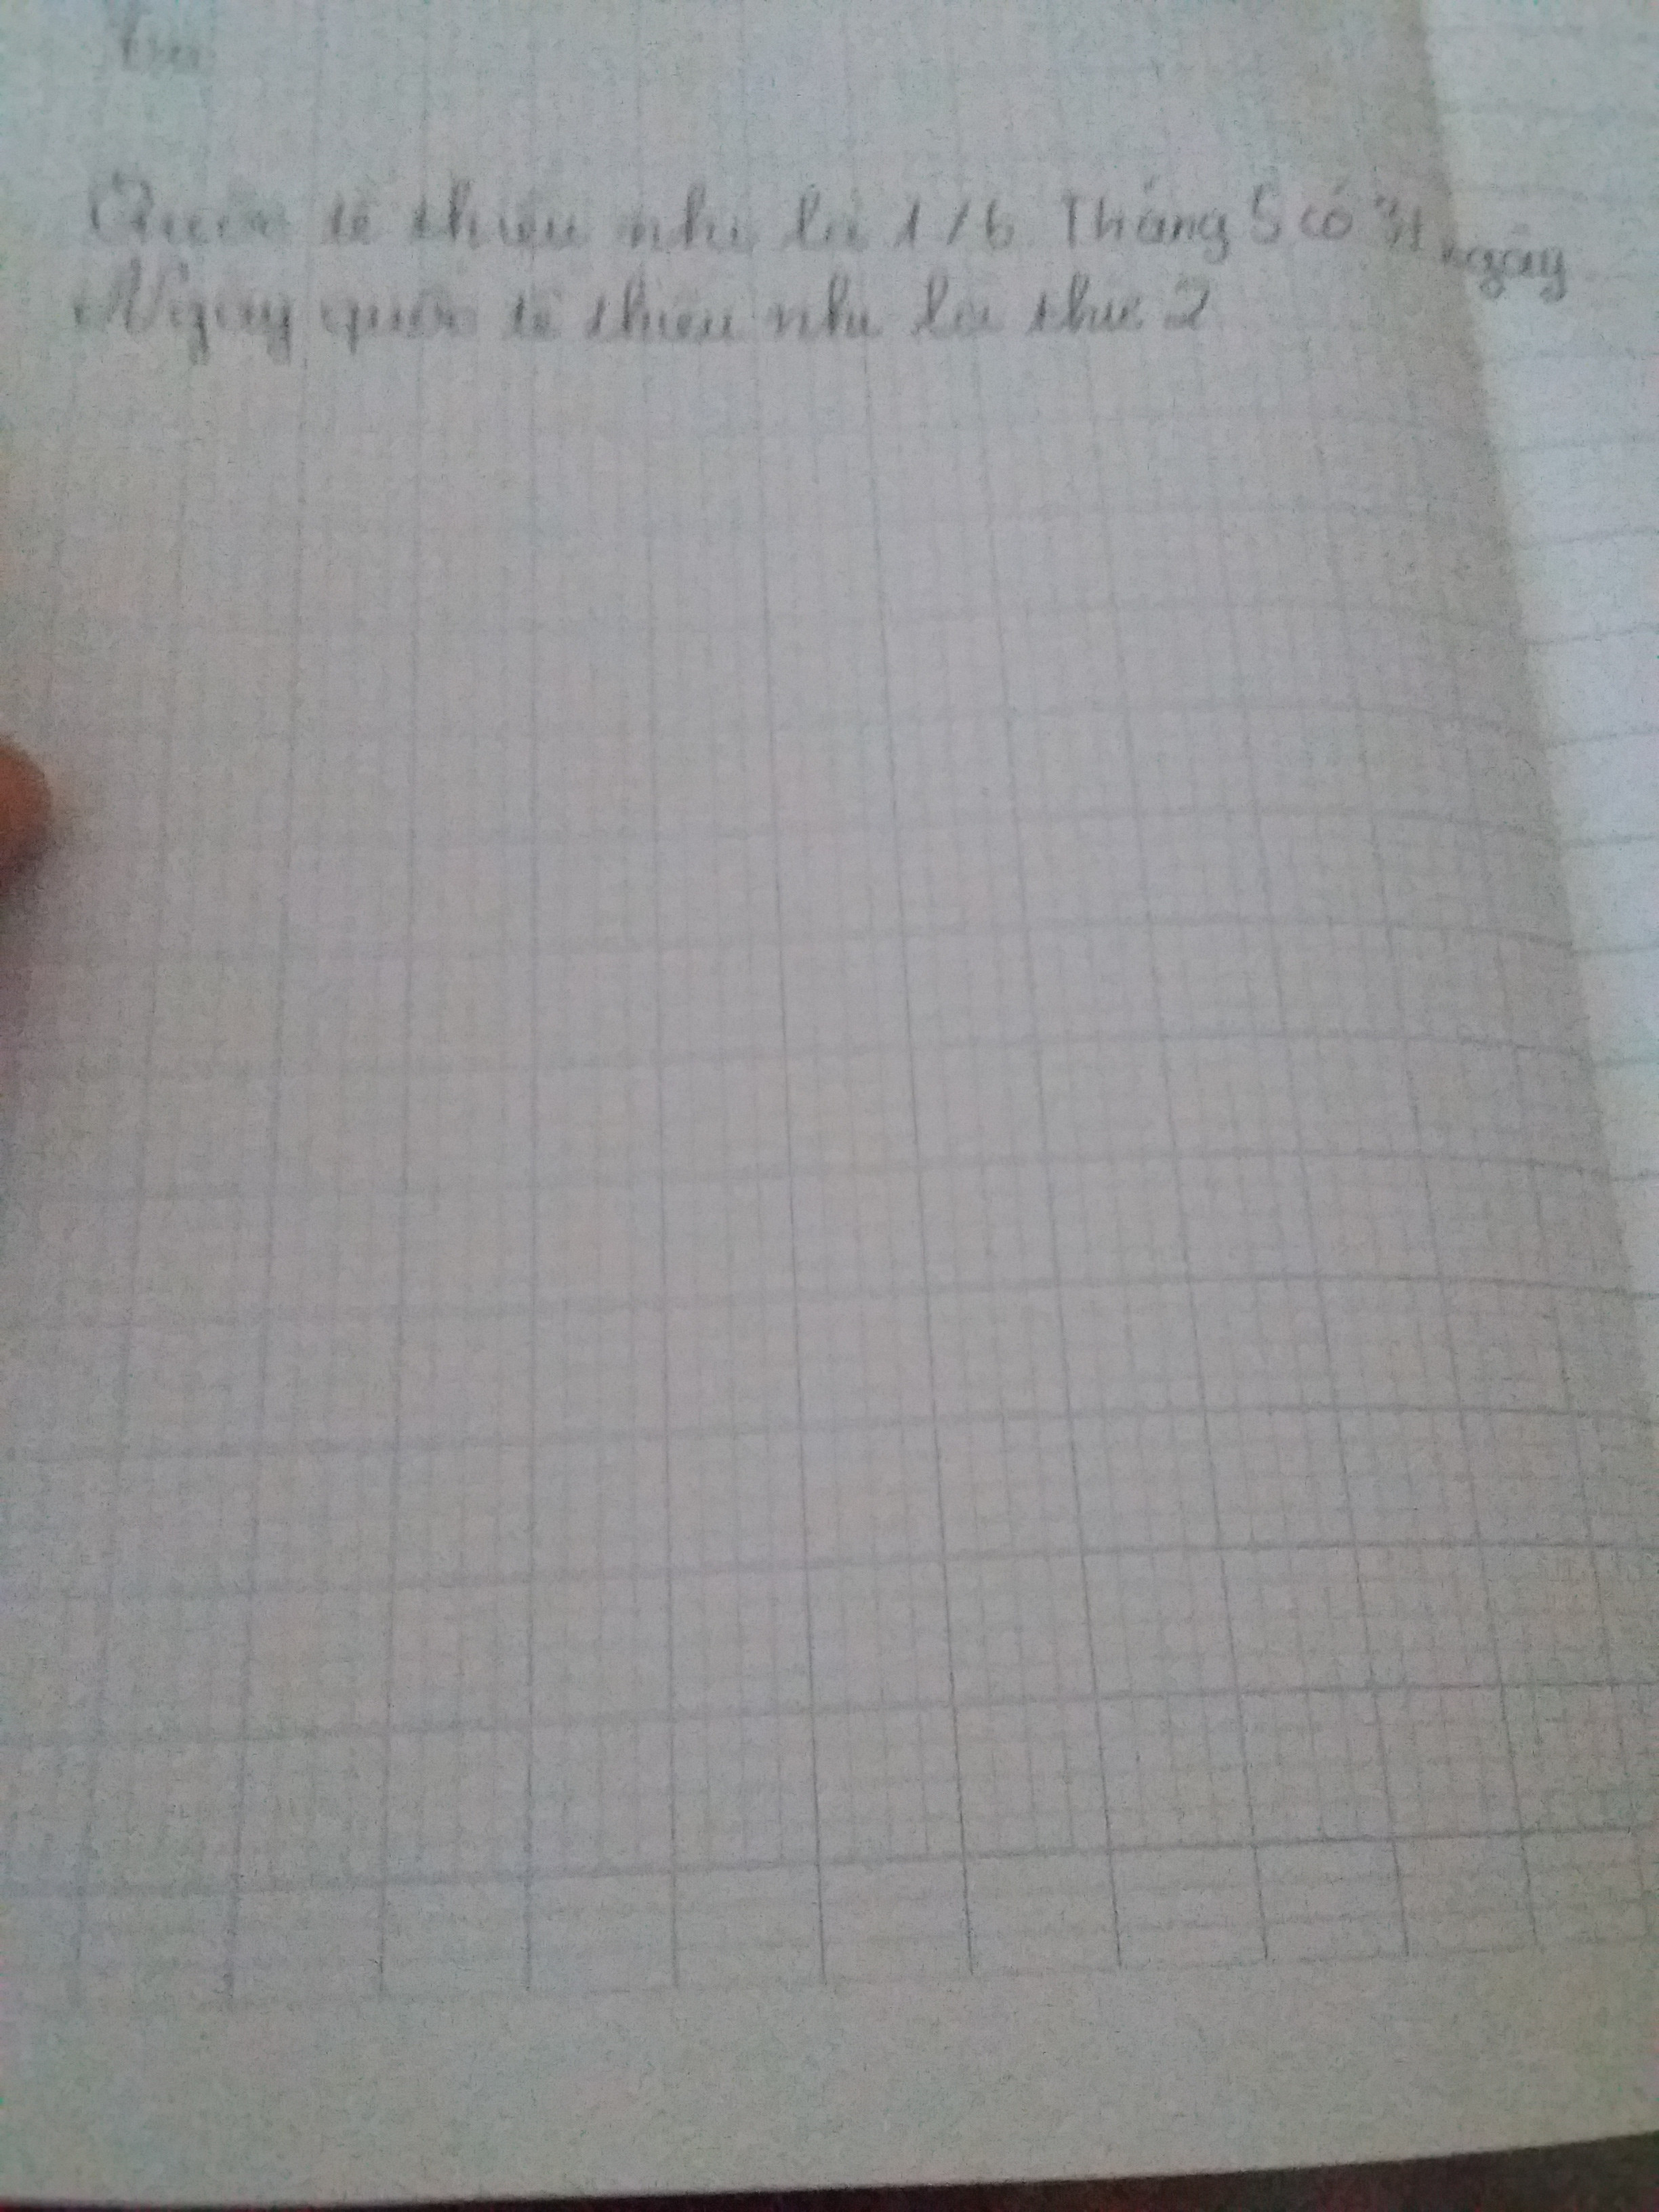 Quốc tế thiếu nhi là 1/6 Tháng 5 có 31 ngày
Ngày quốc tế thiếu nhi là thứ 2